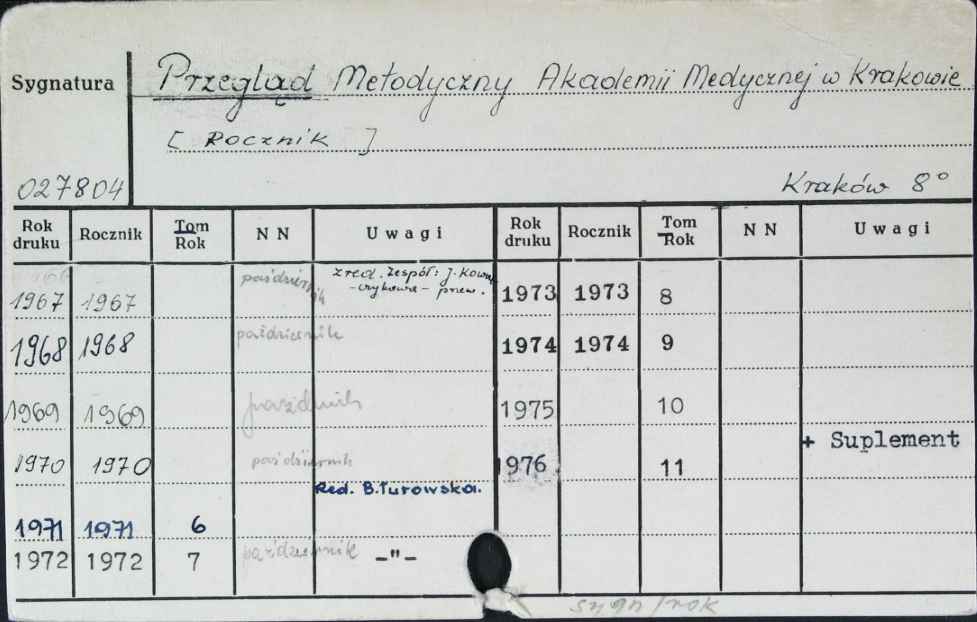 Sygnatura
Przegląd Metodyczny Akademii Medycznej w Krakowie
[ Rocznik ]
027804
Kraków 8°
Rok druku Rocznik Tom Rok NN Uwagi Rok druku Rocznik Tom Rok NN Uwagi
zred. Zespół: J. Kowa
1967 1967 październik 1973 1973 8
1968 1968 październik 1974 1974 9
1969 1969 1975 10
+ Suplement
1970 1970 październik 1976 11
Red. B. Turowska.
1971 1971 6
1972 1972 7 październik -"-
sygn/rok